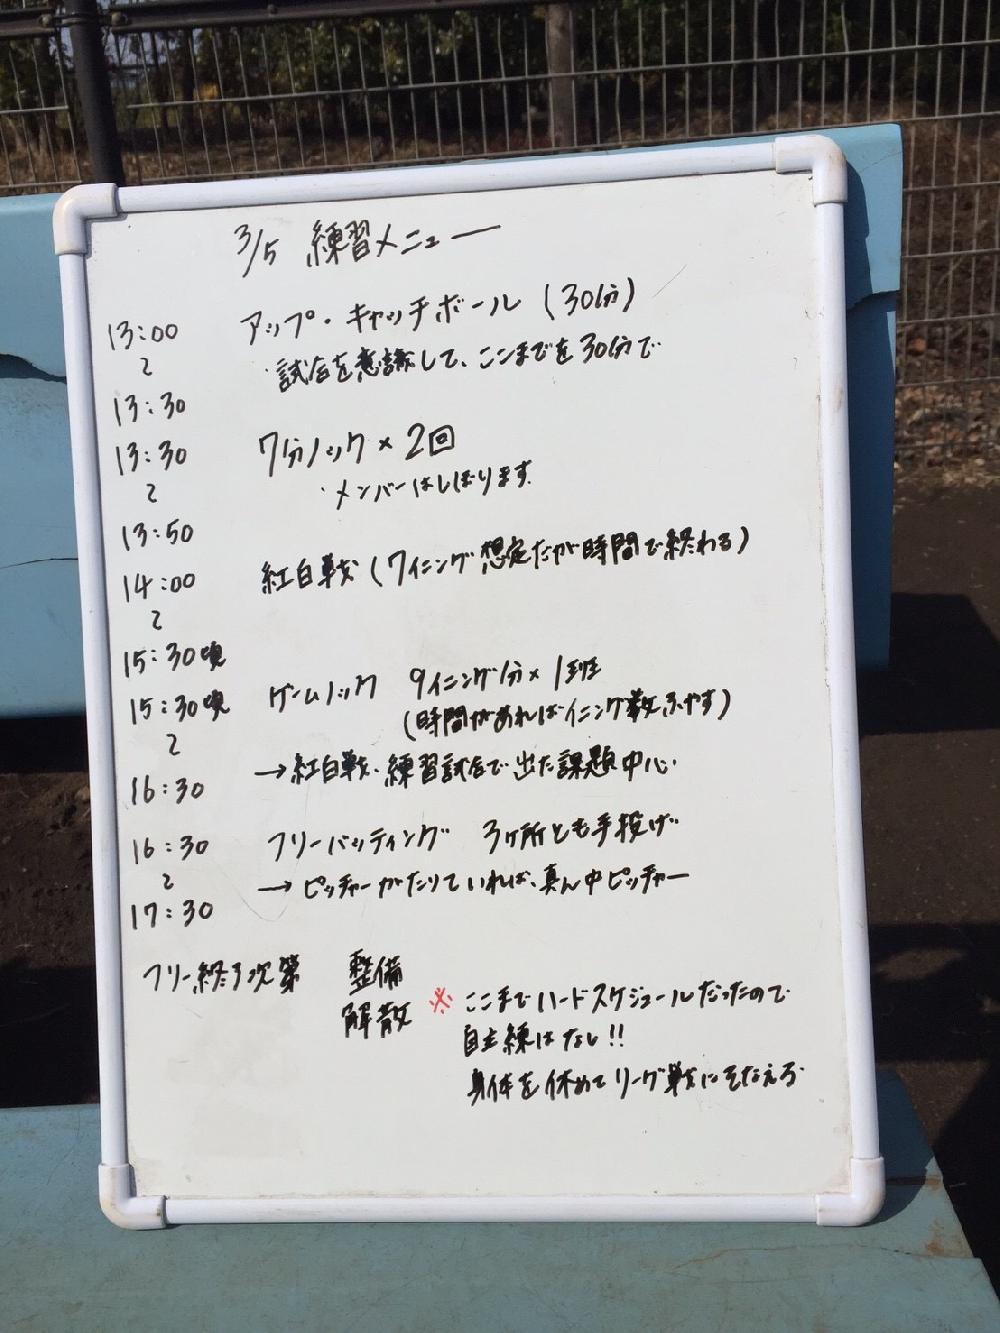 3/5 練習メニュー
13:00 アップ・キャッチボール (30分)
〜 ・試合を意識して、ここまでを30分で
13:30
13:30 7分ノック×2回
〜 ・メンバーはしぼります
13:50
14:00 紅白戦 (7イニング想定だが時間で終わる)
〜
15:30頃
15:30頃 ゲームノック 9イニング分×1班
〜 (時間があればイニング数ふやす)
16:30 →紅白戦、練習試合で出た課題中心
16:30 フリーバッティング 3ヶ所とも手投げ
〜 →ピッチャーがたりていれば、真ん中ピッチャー
17:30
フリー終了次第 整備
解散 ※ ここまでハードスケジュールだったので
自主練はなし!!
身体を休めてリーグ戦にそなえる